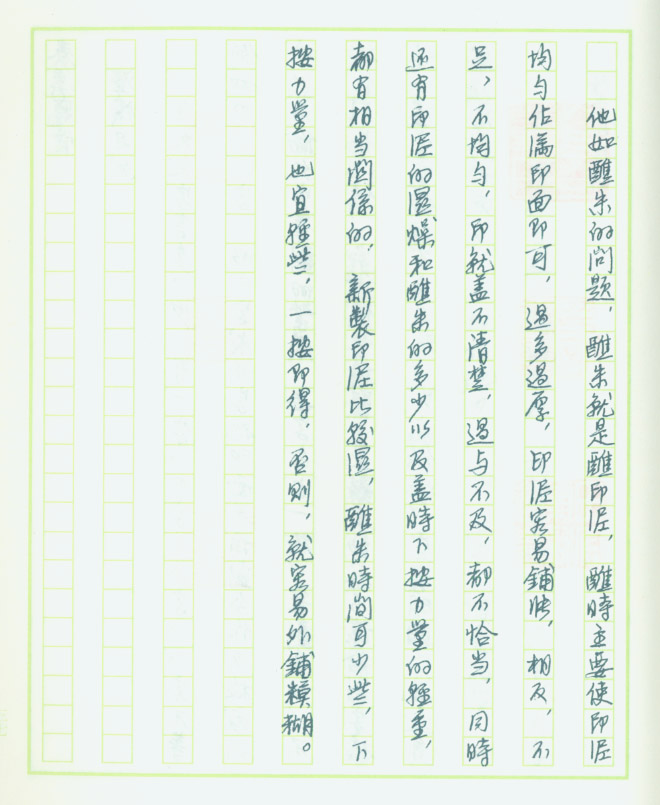 他如醮朱的问题，醮朱就是醮印泥，醮时主要使印泥
均匀佔满印面即可，過多過厚，印泥容易鋪胀，相反，不
足，不均匀，印就盖不清楚，過与不及，都不恰当，同時
还有印泥的濕燥和醮朱的多少以及盖時下按力量的輕重，
都有相当関係的，新製印泥比較濕，醮朱時间可少些，下
按力量，也宜輕些，一按即得，否則，就容易外鋪糢糊。